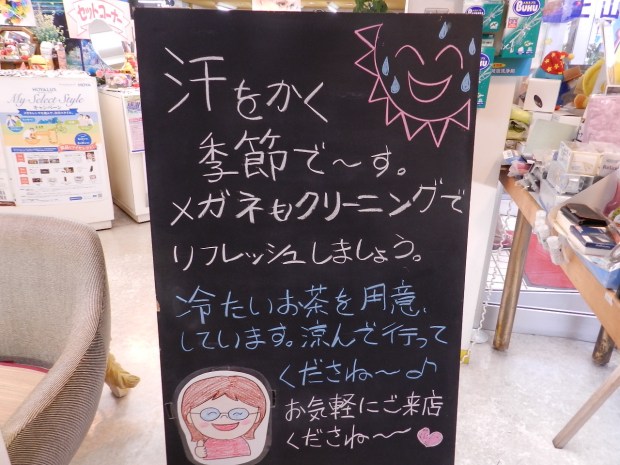 セットコーナー
My Select Style
BUHU
汗をかく
季節で〜す。
メガネもクリーニングで
リフレッシュしましょう。
冷たいお茶を用意
しています。涼んで行って
くださね〜♪
お気軽にご来店
くださね〜〜